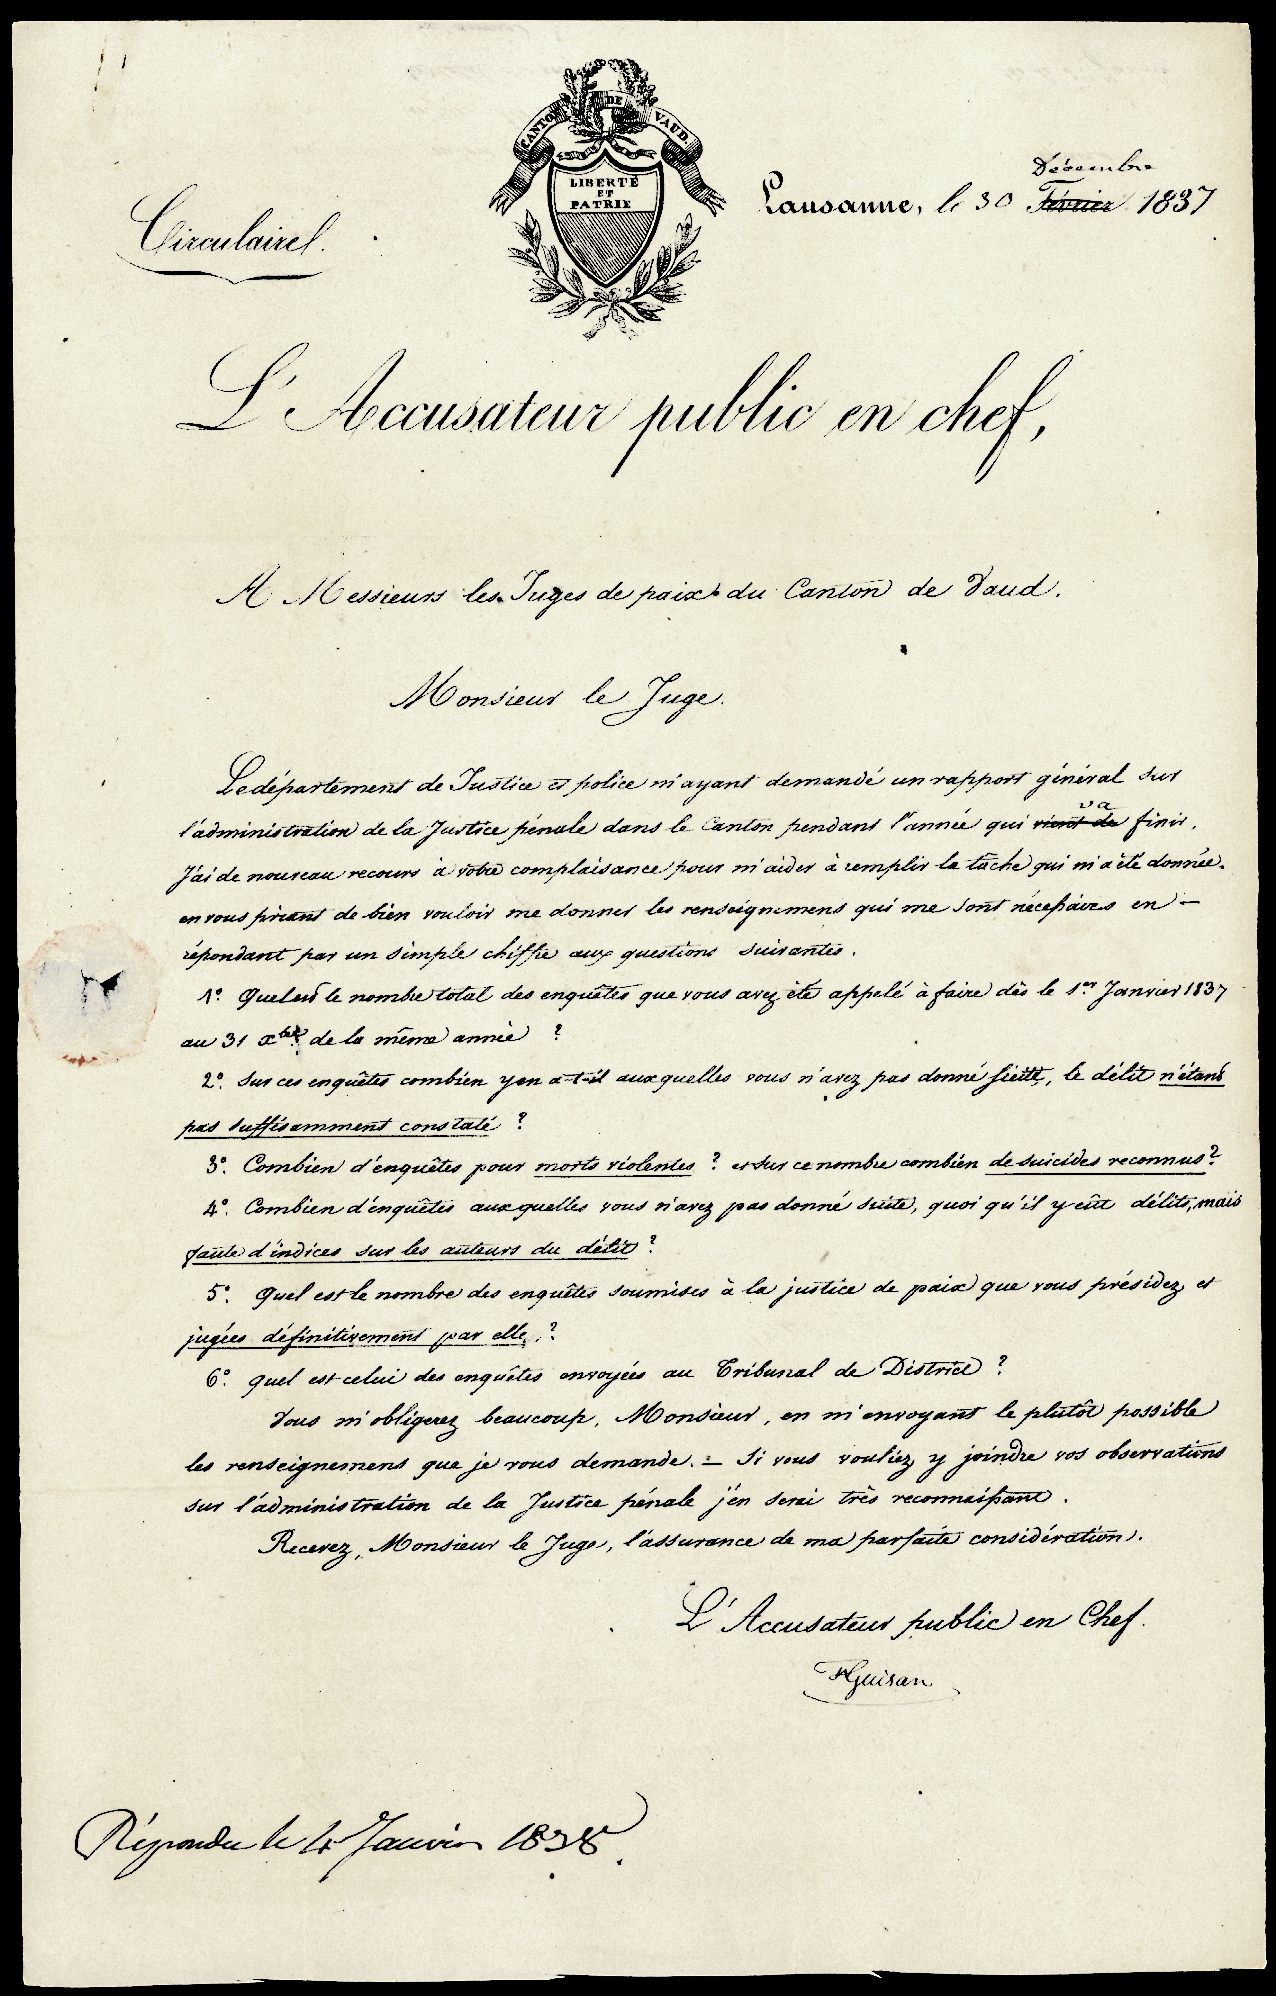 CANTON DE VAUD.
LIBERTÉ
ET
PATRIE
Décembre
Lausanne, le 30 Février 1837
Circulaire.
L'Accusateur public en chef,
A Messieurs les Juges de paix du Canton de Vaud.
Monsieur le Juge.
Le département de Justice et police m'ayant demandé un rapport général sur
va
l'administration de la Justice pénale dans le Canton pendant l'année qui vient de finir.
J'ai de nouveau recours à votre complaisance pour m'aider à remplir la tâche qui m'a été donnée.
en vous priant de bien vouloir me donner les renseignemens qui me sont nécessaires en =
répondant par un simple chiffre aux questions suivantes.
1.° Quel est le nombre total des enquêtes que vous avez été appelé à faire dès le 1.er Janvier 1837
au 31 Xbre de la même année ?
2.° Sur ces enquêtes combien y en a-t-il auxquelles vous n'avez pas donné suite, le délit n'étant
pas suffisamment constaté ?
3.° Combien d'enquêtes pour morts violentes ? et sur ce nombre combien de suicides reconnus ?
4.° Combien d'enquêtes auxquelles vous n'avez pas donné suite, quoi qu'il y eût délits, mais
faute d'indices sur les auteurs du délit ?
5.° Quel est le nombre des enquêtes soumises à la justice de paix que vous présidez et
jugées définitivement par elle, ?
6.° Quel est celui des enquêtes envoyées au Tribunal de District ?
Vous m'obligerez beaucoup, Monsieur, en m'envoyant le plutôt possible
les renseignemens que je vous demande. = Si vous vouliez y joindre vos observations
sur l'administration de la Justice pénale j'en serai très reconnaissant.
Recevez, Monsieur le Juge, l'assurance de ma parfaite considération.
L'Accusateur public en Chef.
Guisan
Répondu le 4 Janvier 1838.